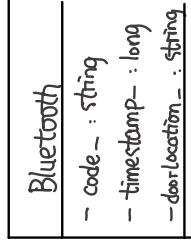 Bluetooth
- code_ : string
- timestamp_ : long
- doorlocation_ : string